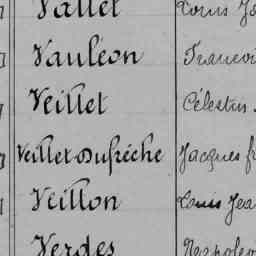 Vallet Louis
Vauléon
Veillet Célestin
Veillet-Dufrêche Jacques
Veillon Louis Jea
Verdes Napoleon